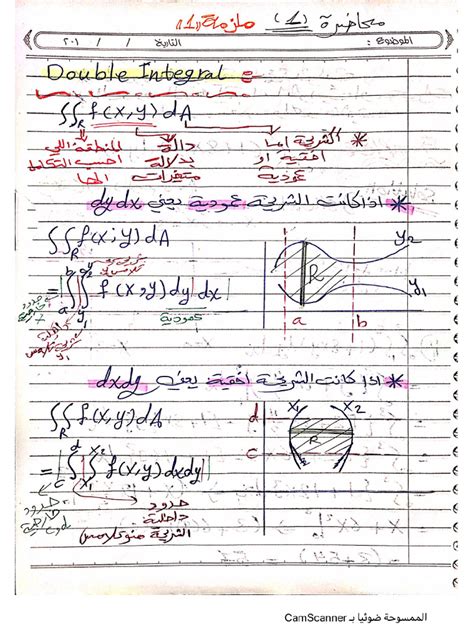 محاضرة (1) ملزمة (1)
الموضوع : التاريخ / / ٢٠١
Double Integral
∬_R f(x,y) dA
* الشريحة اما افقية او عمودية
دالة بدلالة متغيرات
للمنطقة اللي احسب التكامل
* اذا كانت الشريحة عمودية يعني dy dx
∬_R f(x,y) dA
= |∫_a^b ∫_{y1}^{y2} f(x,y) dy dx|
عمودية
حدود
y2
R
y1
a b
* اذا كانت الشريحة افقية يعني dx dy
∬_R f(x,y) dA
= |∫_c^d ∫_{x1}^{x2} f(x,y) dx dy|
d x1 x2
R
c
حدود
خارجية
c و d
حدود
داخلية
الشريحة
الممسوحة ضوئيا بـ CamScanner